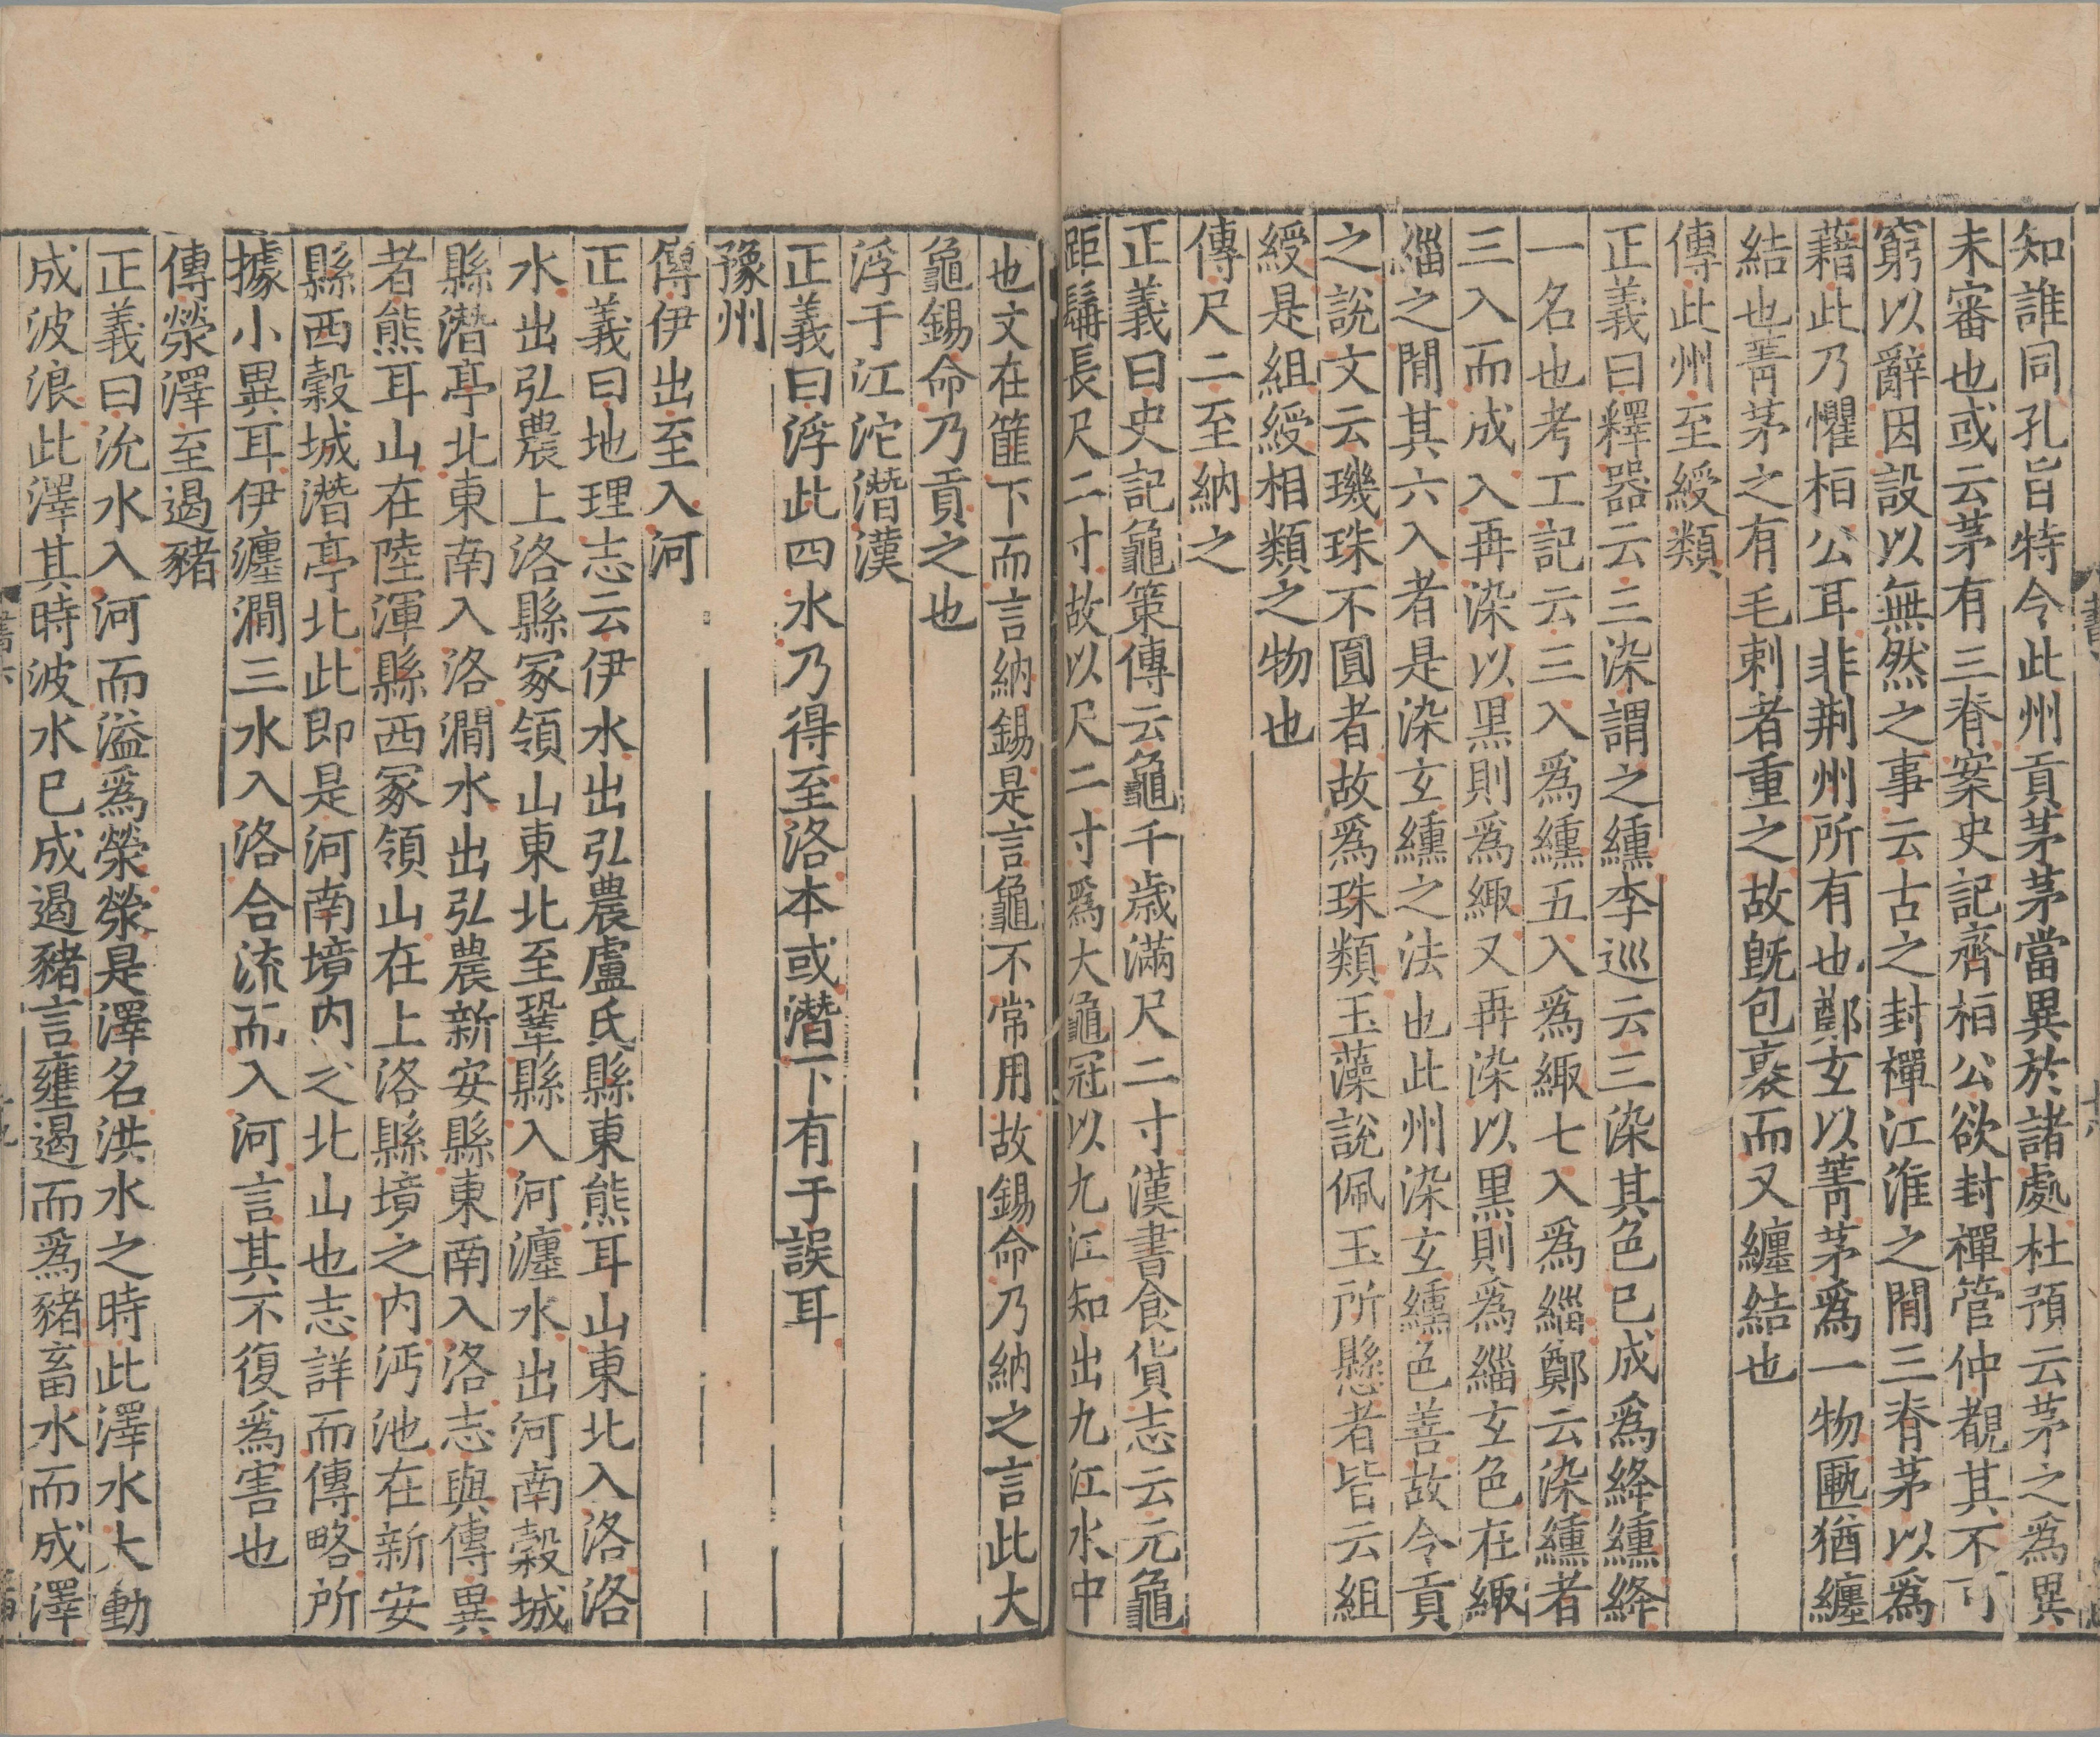 知誰同孔旨特令此州貢茅茅當異於諸處杜預云茅之爲異
未審也或云茅有三脊案史記齊桓公欲封禪管仲覩其不可
窮以辭因設以無然之事云古之封禪江淮之閒三脊茅以爲
藉此乃懼桓公耳非荆州所有也鄭玄以菁茅爲一物匭猶纏
結也菁茅之有毛刺者重之故旣包裹而又纏結也
傳此州至綬類
正義曰釋器云三染謂之纁李巡云三染其色已成爲絳纁絳
一名也考工記云三入爲纁五入爲緅七入爲緇鄭云染纁者
三入而成入再染以黑則爲緅又再染以黑則爲緇玄色在緅
緇之閒其六入者是染玄纁之法也此州染玄纁色善故令貢
之說文云璣珠不圓者故爲珠類玉藻說佩玉所懸者皆云組
綬是組綬相類之物也
傳尺二至納之
正義曰史記龜策傳云龜千歲滿尺二寸漢書食貨志云元龜
距髥長尺二寸故以尺二寸爲大龜冠以九江知出九江水中
也文在篚下而言納錫是言龜不常用故錫命乃納之言此大
龜錫命乃貢之也
浮于江沱潛漢
正義曰浮此四水乃得至洛本或潛下有于誤耳
豫州
傳伊出至入河
正義曰地理志云伊水出弘農盧氏縣東熊耳山東北入洛洛
水出弘農上洛縣冢領山東北至鞏縣入河瀍水出河南穀城
縣潛亭北東南入洛澗水出弘農新安縣東南入洛志與傳異
者熊耳山在陸渾縣西冢領山在上洛縣境之内沔池在新安
縣西穀城潛亭北此即是河南境内之北山也志詳而傳略所
據小異耳伊瀍澗三水入洛合流而入河言其不復爲害也
傳滎澤至遏豬
正義曰沇水入河而溢爲滎滎是澤名洪水之時此澤水大動
成波浪此澤其時波水已成遏豬言壅遏而爲豬畜水而成澤